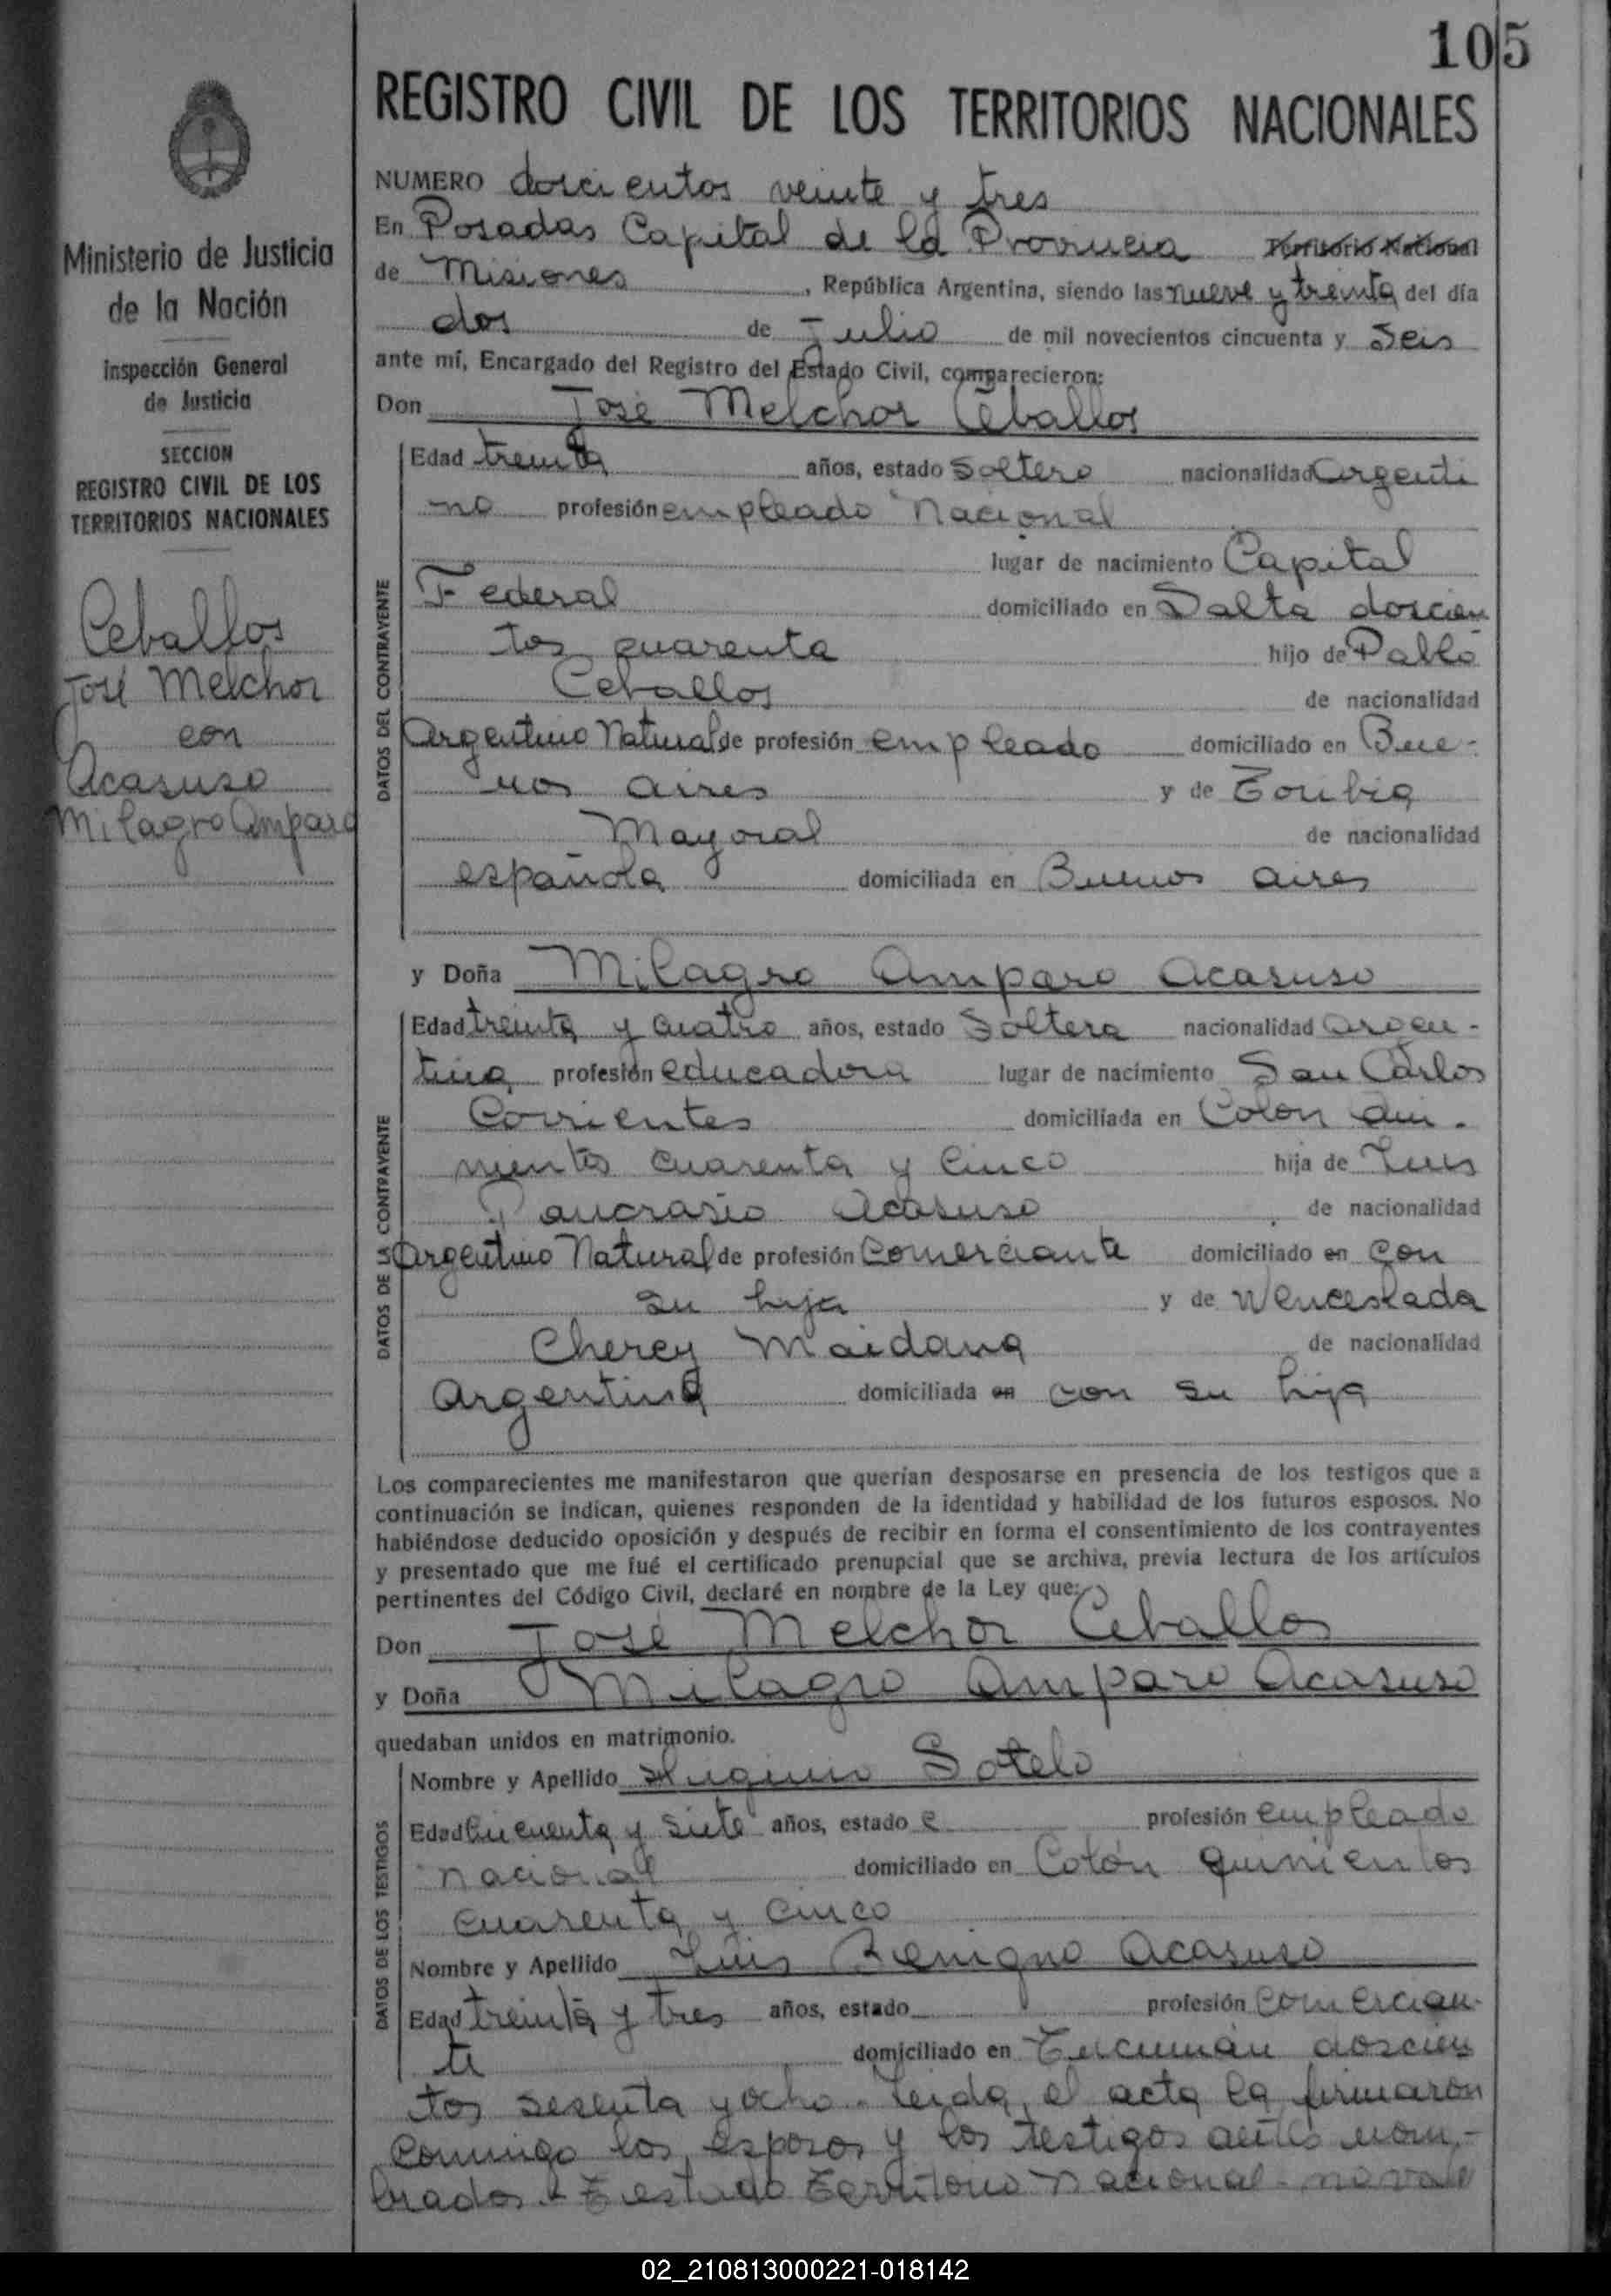 105
REGISTRO CIVIL DE LOS TERRITORIOS NACIONALES
Ministerio de Justicia
de la Nación
Inspección General
de Justicia
SECCION
REGISTRO CIVIL DE LOS
TERRITORIOS NACIONALES
Ceballos
José Melchor
con
Acasuso
Milagro Amparo
NUMERO doscientos veinte y tres
En Posadas Capital de la Provincia Territorio Nacional
de Misiones, República Argentina, siendo las nueve y treinta del día
dos de Julio de mil novecientos cincuenta y seis
ante mí, Encargado del Registro del Estado Civil, comparecieron:
Don José Melchor Ceballos
DATOS DEL CONTRAYENTE
Edad treinta años, estado Soltero nacionalidad Argenti
no profesión empleado Nacional
lugar de nacimiento Capital
Federal domiciliado en Salta doscien
tos cuarenta hijo de Pablo
Ceballos de nacionalidad
Argentino Natural de profesión empleado domiciliado en Bue-
nos aires y de Toribia
Mayoral de nacionalidad
española domiciliada en Buenos aires
y Doña Milagro Amparo Acasuso
DATOS DE LA CONTRAYENTE
Edad treinta y cuatro años, estado Soltera nacionalidad argen-
tina profesión educadora lugar de nacimiento San Carlos
Corrientes domiciliada en Colon qui-
nientos cuarenta y cinco hija de Luis
Pancrasio Acasuso de nacionalidad
Argentino Natural de profesión Comerciante domiciliado en con
su hija y de Wenceslada
Cherey Maidana de nacionalidad
Argentina domiciliada en con su hija
Los comparecientes me manifestaron que querían desposarse en presencia de los testigos que a
continuación se indican, quienes responden de la identidad y habilidad de los futuros esposos. No
habiéndose deducido oposición y después de recibir en forma el consentimiento de los contrayentes
y presentado que me fué el certificado prenupcial que se archiva, previa lectura de los artículos
pertinentes del Código Civil, declaré en nombre de la Ley que:
Don José Melchor Ceballos
y Doña Milagro Amparo Acasuso
quedaban unidos en matrimonio.
DATOS DE LOS TESTIGOS
Nombre y Apellido Higinio Sotelo
Edad Cincuenta y siete años, estado c profesión empleado
nacional domiciliado en Colón quinientos
cuarenta y cinco
Nombre y Apellido Luis Benigno Acasuso
Edad treinta y tres años, estado profesión Comercian-
te domiciliado en Tucumán doscien
tos sesenta y ocho. Leida el acta la firmaron
conmigo los esposos y los testigos antes nom-
brados. Testado Territorio Nacional - no vale
02_210813000221-018142